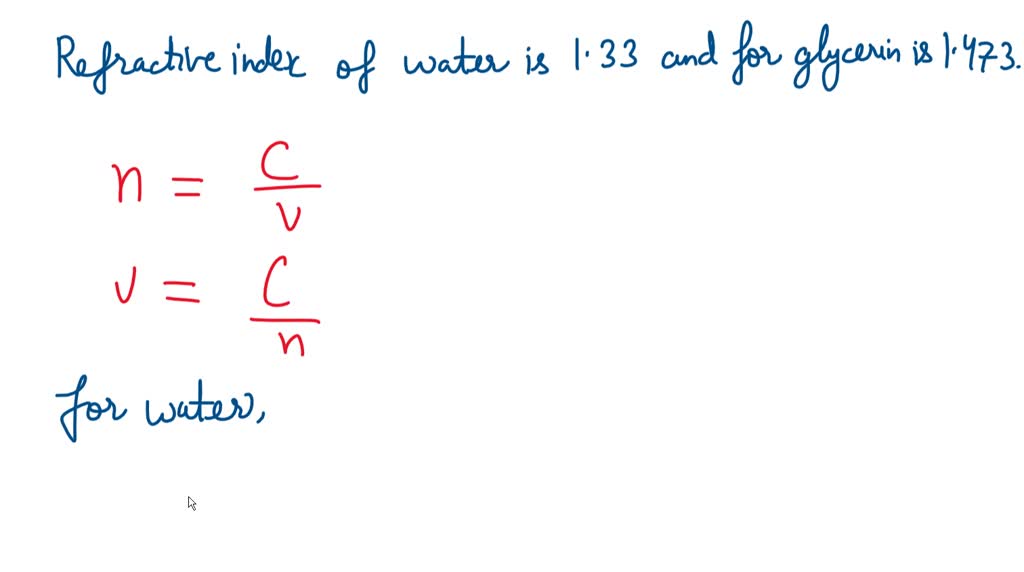 Refractive index of water is 1.33 and for glycerin is 1.473.
n = C/v
v = C/n
for water,